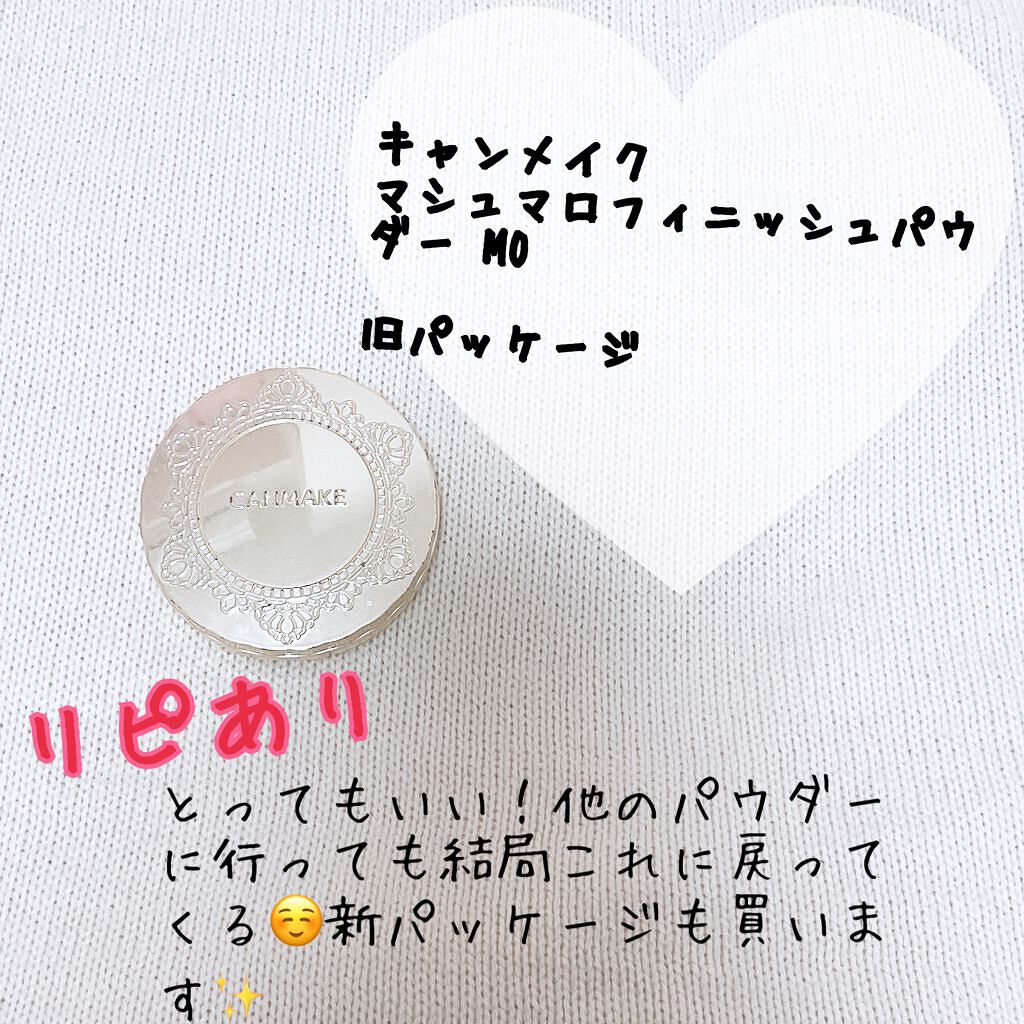 キャンメイク
マシュマロフィニッシュパウ
ダー MO
旧パッケージ
CANMAKE
リピあり
とってもいい！他のパウダー
に行っても結局これに戻って
くる☺️新パッケージも買いま
す✨